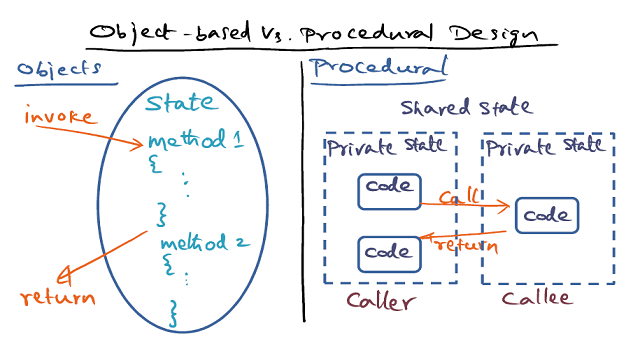 Object-based Vs. Procedural Design
Objects
State
invoke
method 1
{
⋮
}
method 2
{
⋮
}
return
Procedural
Shared State
Private State
code
code
Caller
call
return
Private State
code
Callee